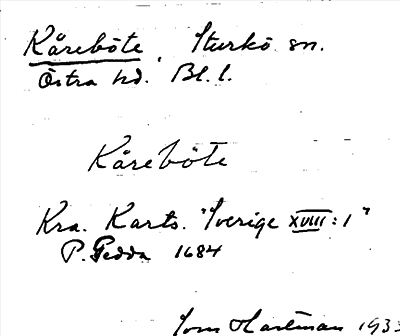 Kåreböte. Sturkö sn.
Östra hd. Bl. l.
Kårebôte
Kra. Karts. "Sverige XVIII: 1"
P. Gedda 1684
Hartman 193